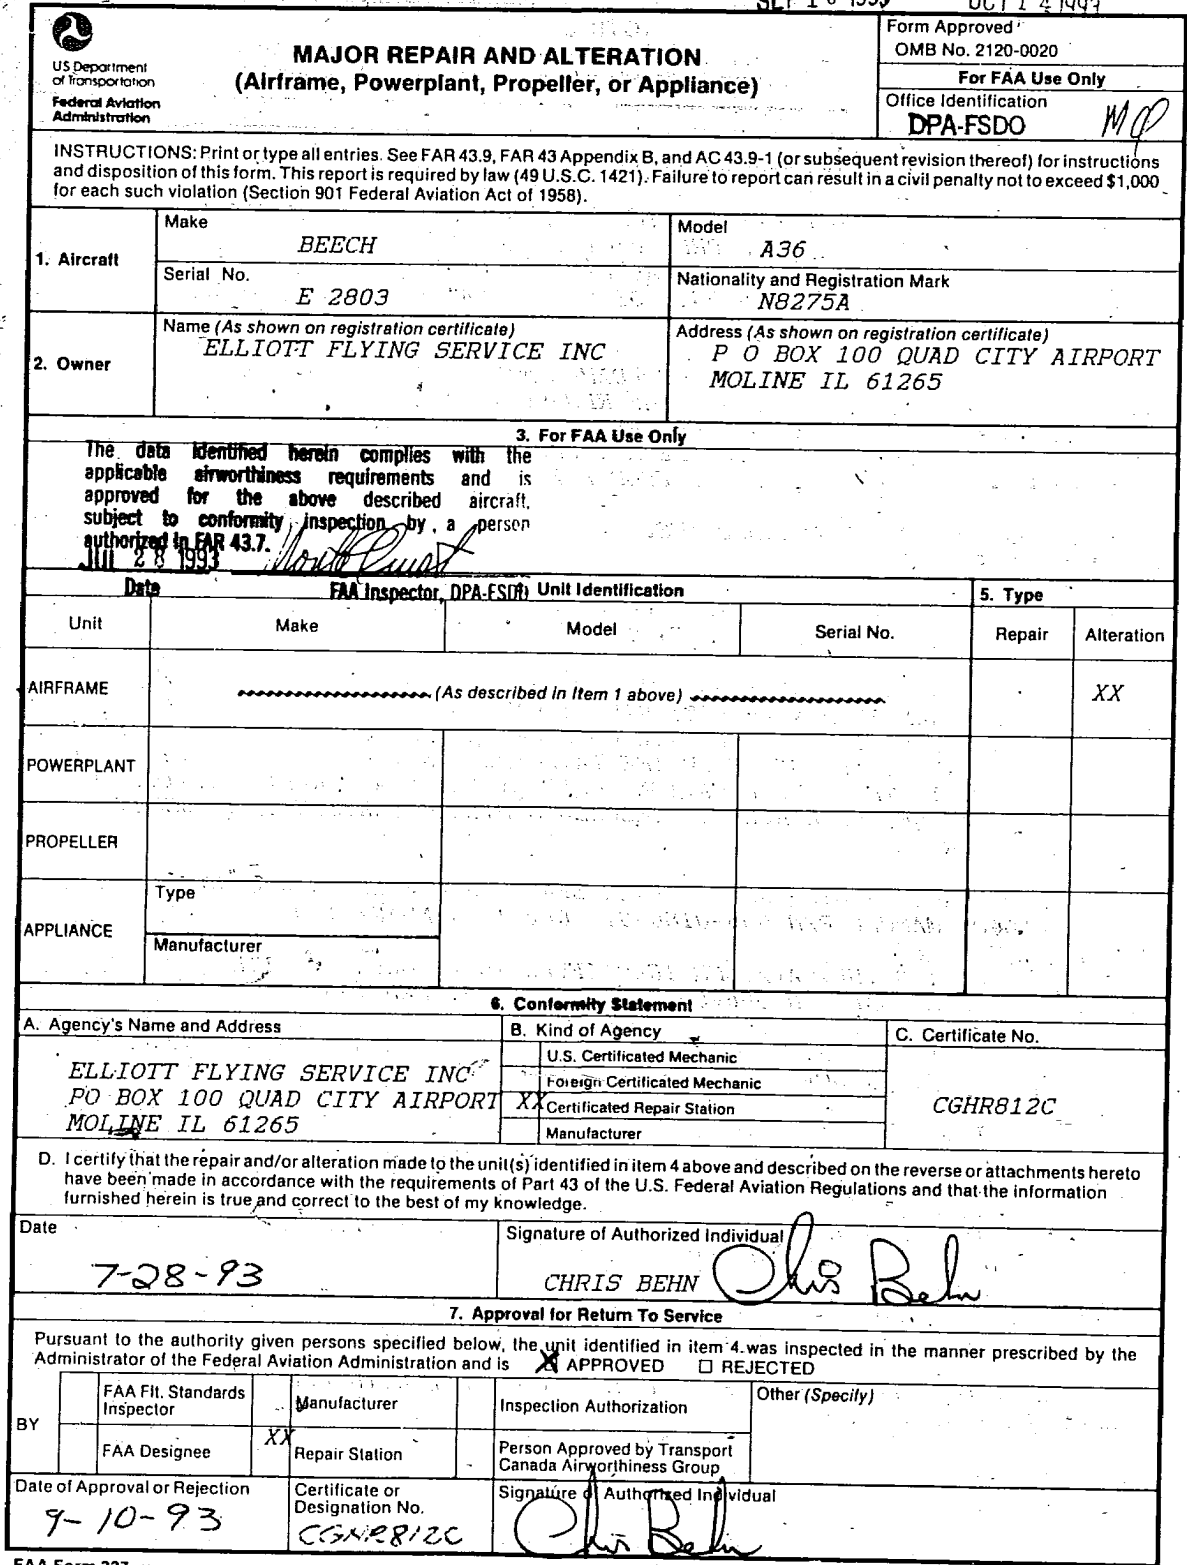 OCT 1 4 1993
US Department
of Transportation
Federal Aviation
Administration
MAJOR REPAIR AND ALTERATION
(Airframe, Powerplant, Propeller, or Appliance)
Form Approved
OMB No. 2120-0020
For FAA Use Only
Office Identification
DPA-FSDO
INSTRUCTIONS: Print or type all entries. See FAR 43.9, FAR 43 Appendix B, and AC 43.9-1 (or subsequent revision thereof) for instructions
and disposition of this form. This report is required by law (49 U.S.C. 1421). Failure to report can result in a civil penalty not to exceed $1,000
for each such violation (Section 901 Federal Aviation Act of 1958).
1. Aircraft
Make
BEECH
Model
A36
Serial No.
E 2803
Nationality and Registration Mark
N8275A
2. Owner
Name (As shown on registration certificate)
ELLIOTT FLYING SERVICE INC
Address (As shown on registration certificate)
P O BOX 100 QUAD CITY AIRPORT
MOLINE IL 61265
3. For FAA Use Only
The data identified herein complies with the
applicable airworthiness requirements and is
approved for the above described aircraft,
subject to conformity inspection by a person
authorized in FAR 43.7.
JUL 28 1993
Date
FAA Inspector, DPA-FSDO
Unit Identification
5. Type
Unit
Make
Model
Serial No.
Repair
Alteration
AIRFRAME
(As described in Item 1 above)
XX
POWERPLANT
PROPELLER
APPLIANCE
Type
Manufacturer
6. Conformity Statement
A. Agency's Name and Address
B. Kind of Agency
C. Certificate No.
ELLIOTT FLYING SERVICE INC
PO BOX 100 QUAD CITY AIRPORT
MOLINE IL 61265
U.S. Certificated Mechanic
Foreign Certificated Mechanic
XX Certificated Repair Station
Manufacturer
CGHR812C
D. I certify that the repair and/or alteration made to the unit(s) identified in item 4 above and described on the reverse or attachments hereto
have been made in accordance with the requirements of Part 43 of the U.S. Federal Aviation Regulations and that the information
furnished herein is true and correct to the best of my knowledge.
Date
7-28-93
Signature of Authorized Individual
CHRIS BEHN Chris Behn
7. Approval for Return To Service
Pursuant to the authority given persons specified below, the unit identified in item 4 was inspected in the manner prescribed by the
Administrator of the Federal Aviation Administration and is X APPROVED ☐ REJECTED
BY
FAA Flt. Standards
Inspector
Manufacturer
Inspection Authorization
Other (Specify)
FAA Designee
XX
Repair Station
Person Approved by Transport
Canada Airworthiness Group
Date of Approval or Rejection
9-10-93
Certificate or
Designation No.
CGNR812C
Signature of Authorized Individual
Chris Behn